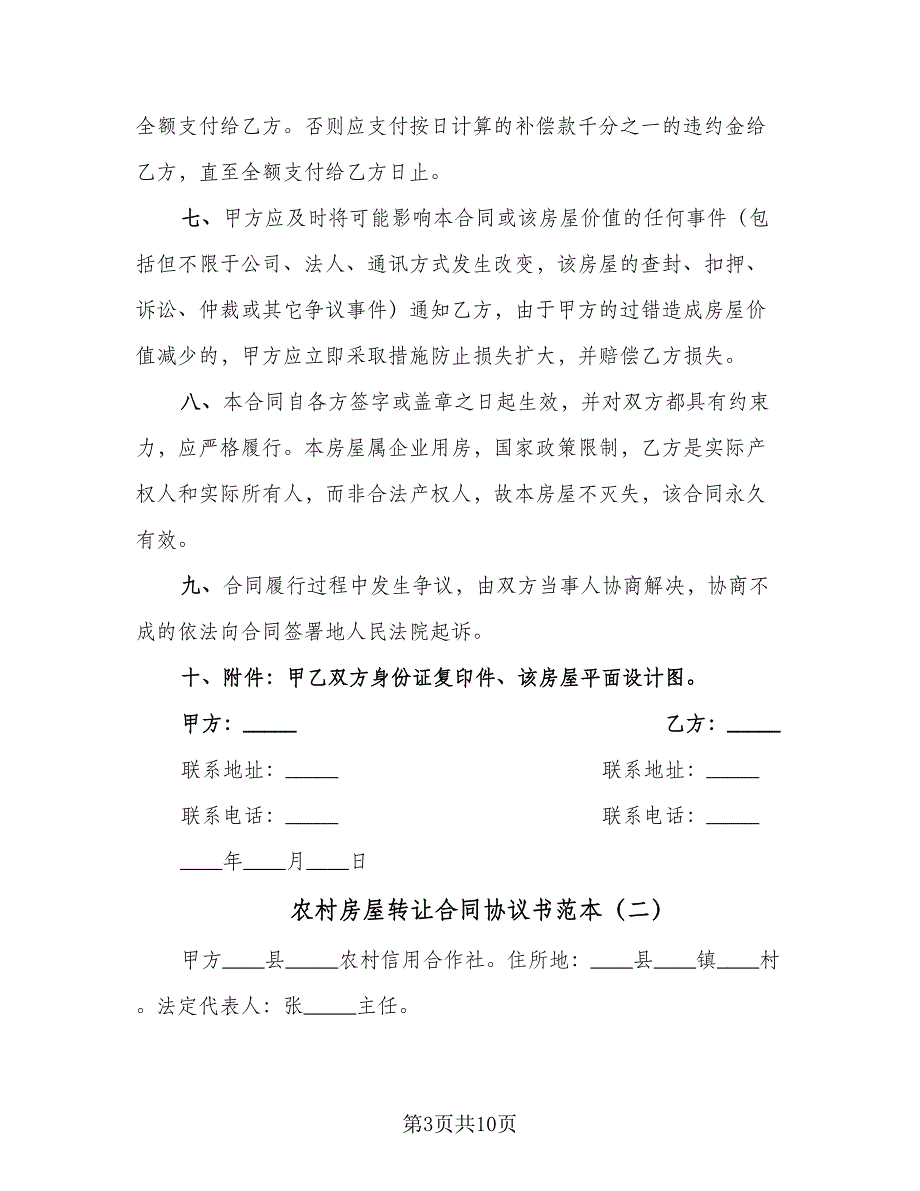 全额支付给乙方。否则应支付按日计算的补偿款千分之一的违约金给
乙方，直至全额支付给乙方日止。
七、甲方应及时将可能影响本合同或该房屋价值的任何事件（包
括但不限于公司、法人、通讯方式发生改变，该房屋的查封、扣押、
诉讼、仲裁或其它争议事件）通知乙方，由于甲方的过错造成房屋价
值减少的，甲方应立即采取措施防止损失扩大，并赔偿乙方损失。
八、本合同自各方签字或盖章之日起生效，并对双方都具有约束
力，应严格履行。本房屋属企业用房，国家政策限制，乙方是实际产
权人和实际所有人，而非合法产权人，故本房屋不灭失，该合同永久
有效。
九、合同履行过程中发生争议，由双方当事人协商解决，协商不
成的依法向合同签署地人民法院起诉。
十、附件：甲乙双方身份证复印件、该房屋平面设计图。
甲方：_____ 乙方：_____
联系地址：_____ 联系地址：_____
联系电话：_____ 联系电话：_____
____年____月____日
农村房屋转让合同协议书范本（二）
甲方____县_____农村信用合作社。住所地：____县____镇____村
。法定代表人：张_____主任。
第3页共10页